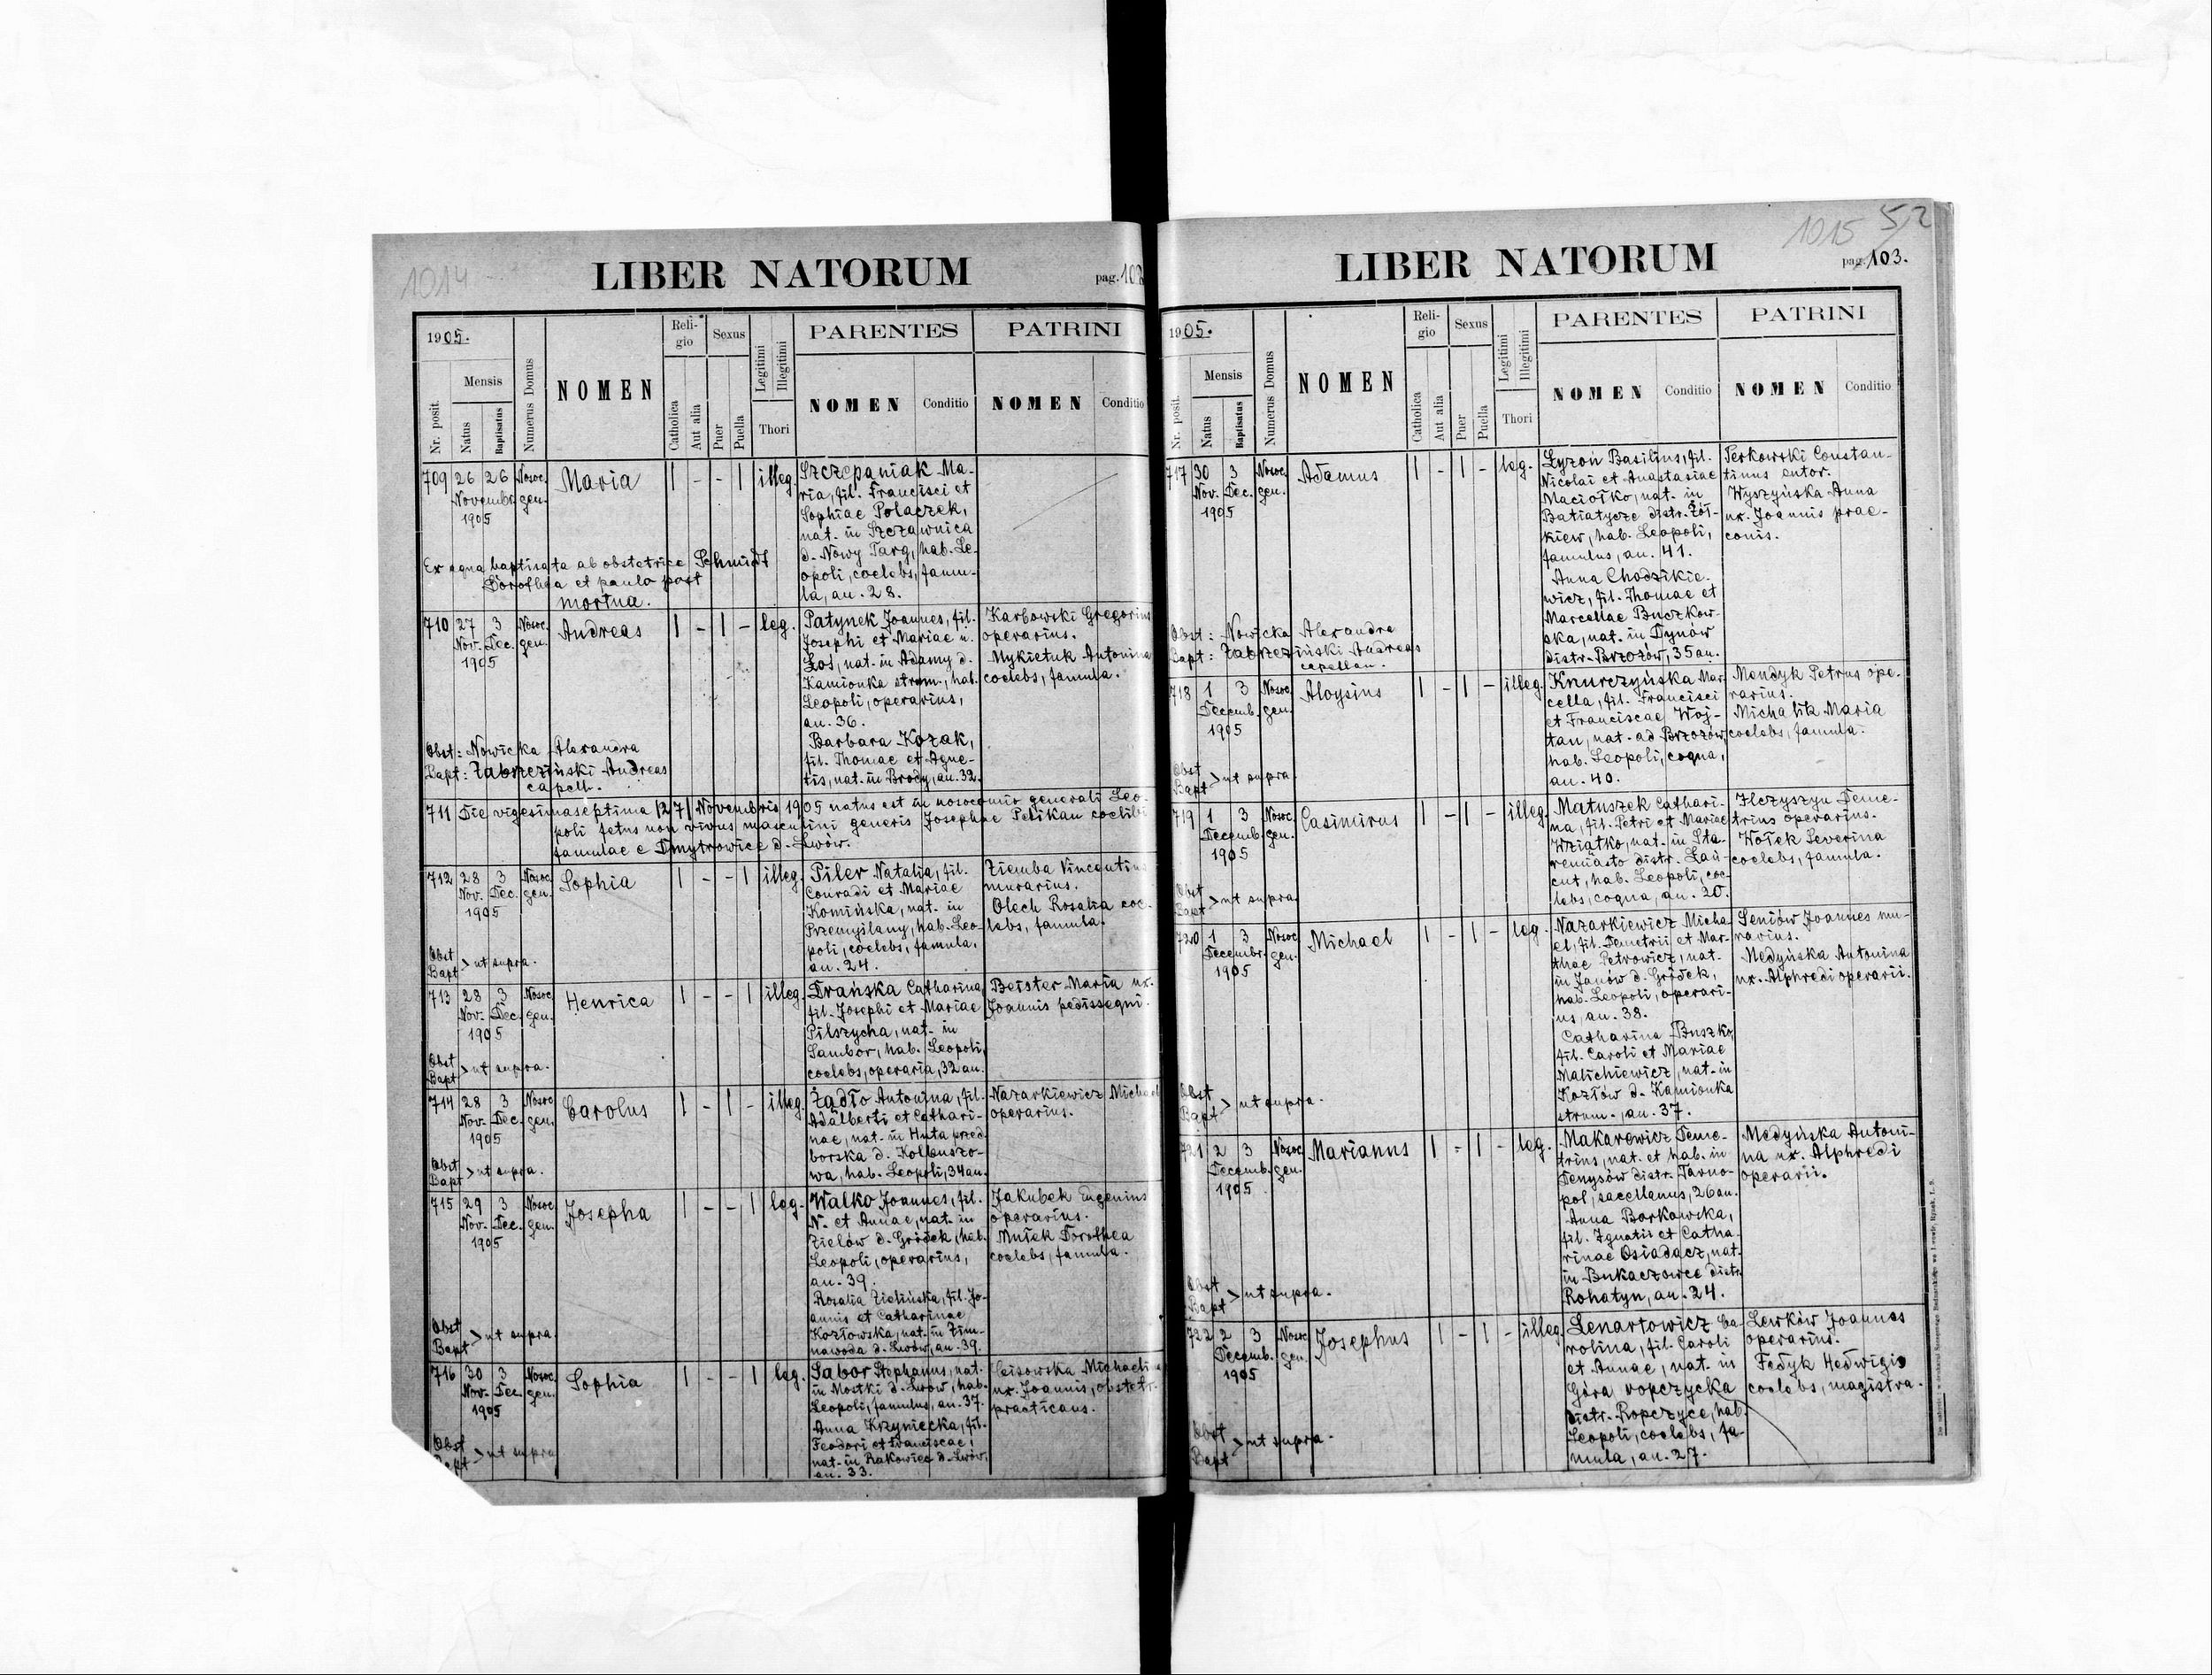 1014
LIBER NATORUM
pag. 102
1905.
Nr. posit.
Mensis
Natus
Baptisatus
Numerus Domus
NOMEN
Religio
Catholica
Aut alia
Sexus
Puer
Puella
Legitimi
Illegitimi
Thori
PARENTES
NOMEN
Conditio
PATRINI
NOMEN
Conditio
709 26 26 Nosoc. Maria 1 - - 1 illeg.
Novembr. gen.
1905
Szczepaniak Ma-
ria, fil. Francisci et
Sophiae Polaczek,
nat. in Szczawnica
d. Nowy Targ, hab. Le-
opoli, coelebs, famu-
la, an. 28.
Ex aqua baptisata ab obstetrice Schmidt
Dorothea et paulo post
mortua.
710 27 3 Nosoc. Andreas 1 - 1 - leg.
Nov. Dec. gen.
1905
Patynek Joannes, fil.
Josephi et Mariae n.
Łoś, nat. in Adamy d.
Kamionka strum., hab.
Leopoli, operarius,
an. 36.
Barbara Kozak,
fil. Thomae et Agne-
tis, nat. in Brody, an. 32.
Karbowski Gregorius
operarius.
Mykietuk Antonina
coelebs, famula.
Obst: Nowicka Alexandra
Bapt: Zabrzeziński Andreas
capell.
711 Die vigesimaseptima /27/ Novembris 1905 natus est in nosocomio generali Leo-
poli fetus non vivus masculini generis Josephae Pelikan coelibi
famulae e Dmytrowice d. Lwów.
712 28 3 Nosoc. Sophia 1 - - 1 illeg.
Nov. Dec. gen.
1905
Piler Natalia, fil.
Conradi et Mariae
Komińska, nat. in
Przemyślany, hab. Leo-
poli, coelebs, famula,
an. 24.
Ziemba Vincentius
murarius.
Olech Rosalia coe-
lebs, famula.
Obst
Bapt > ut supra.
713 28 3 Nosoc. Henrica 1 - - 1 illeg.
Nov. Dec. gen.
1905
Drańska Catharina,
fil. Josephi et Mariae
Pilszycha, nat. in
Sambor, hab. Leopoli,
coelebs, operaria, 32 an.
Beister Maria ux.
Joannis pedissequi.
Obst
Bapt > ut supra.
714 28 3 Nosoc. Carolus 1 - 1 - illeg.
Nov. Dec. gen.
1905
Żądło Antonina, fil.
Adalberti et Cathari-
nae, nat. in Huta przed-
borska d. Kolbuszo-
wa, hab. Leopoli, 34 an.
Nazarkiewicz Michael
operarius.
Obst
Bapt > ut supra.
715 29 3 Nosoc. Josepha 1 - - 1 leg.
Nov. Dec. gen.
1905
Walko Joannes, fil.
N. et Annae, nat. in
Zielów d. Gródek, hab.
Leopoli, operarius,
an. 39.
Rosalia Zielińska, fil. Jo-
annis et Catharinae
Kozłowska, nat. in Zim-
nawoda d. Lwów, an. 39.
Jakubek Eugenius
operarius.
Mułek Dorothea
coelebs, famula.
Obst
Bapt > ut supra
716 30 3 Nosoc. Sophia 1 - - 1 leg.
Nov. Dec. gen.
1905
Sabor Stephanus, nat.
in Mostki d. Lwów, hab.
Leopoli, famulus, an. 37.
Anna Krzyniecka, fil.
Feodori et Franciscae,
nat. in Rakowiec d. Lwów,
an. 33.
Cisowska Michaelina
ux. Joannis, obstetr.
practicans.
Obst
Bapt > ut supra
1015 52
LIBER NATORUM
pag. 103.
1905.
Nr. posit.
Mensis
Natus
Baptisatus
Numerus Domus
NOMEN
Religio
Catholica
Aut alia
Sexus
Puer
Puella
Legitimi
Illegitimi
Thori
PARENTES
NOMEN
Conditio
PATRINI
NOMEN
Conditio
717 30 3 Nosoc. Adamus 1 - 1 - leg.
Nov. Dec. gen.
1905
Łyzoń Basilius, fil.
Nicolai et Anastasiae
Maciołko, nat. in
Batiatycze distr. Żół-
kiew, hab. Leopoli,
famulus, an. 41.
Anna Chodzikie-
wicz, fil. Thomae et
Marcellae Buczkow-
ska, nat. in Dynów
distr. Brzozów, 35 an.
Perkowski Constan-
tinus sutor.
Wyszyńska Anna
ux. Joannis prae-
conis.
Obst: Nowicka Alexandra
Bapt: Zabrzeziński Andreas
capellan.
718 1 3 Nosoc. Aloysius 1 - 1 - illeg.
Decemb. gen.
1905
Knurczyńska Mar-
cella, fil. Francisci
et Franciscae Woj-
tan, nat. ad Brzozów,
hab. Leopoli, coqua,
an. 40.
Mendyk Petrus ope-
rarius.
Michalik Maria
coelebs, famula.
Obst
Bapt > ut supra
719 1 3 Nosoc. Casimirus 1 - 1 - illeg.
Decemb. gen.
1905
Matuszek Cathari-
na, fil. Petri et Mariae
Wziątko, nat. in Sta-
remiasto distr. Łań-
cut, hab. Leopoli, coe-
lebs, coqua, an. 20.
Ilczyszyn Deme-
trius operarius.
Wołek Severina
coelebs, famula.
Obst
Bapt > ut supra.
720 1 3 Nosoc. Michael 1 - 1 - leg.
Decembr. gen.
1905
Nazarkiewicz Micha-
el, fil. Demetrii et Mar-
thae Petrowicz, nat.
in Janów d. Gródek,
hab. Leopoli, operari-
us, an. 38.
Catharina Buszko,
fil. Caroli et Mariae
Malichiewicz, nat. in
Kozłów d. Kamionka
strum., an. 37.
Seniów Joannes mu-
rarius.
Medyńska Antonina
ux. Alphredi operarii.
Obst
Bapt > ut supra.
721 2 3 Nosoc. Marianus 1 - 1 - leg.
Decemb. gen.
1905
Makarewicz Deme-
trius, nat. et hab. in
Denysów distr. Tarno-
pol, sacellanus, 26 an.
Anna Borkowska,
fil. Ignatii et Catha-
rinae Osiadacz, nat.
in Bukaczowce distr.
Rohatyn, an. 24.
Medyńska Antoni-
na ux. Alphredi
operarii.
Obst
Bapt > ut supra.
722 2 3 Nosoc. Josephus 1 - 1 - illeg.
Decemb. gen.
1905
Lenartowicz Ca-
rolina, fil. Caroli
et Annae, nat. in
Góra ropczycka
distr. Ropczyce, hab.
Leopoli, coelebs, fa-
mula, an. 27.
Lewków Joannes
operarius.
Fedyk Hedwigis
coelebs, magistra.
Obst
Bapt > ut supra.